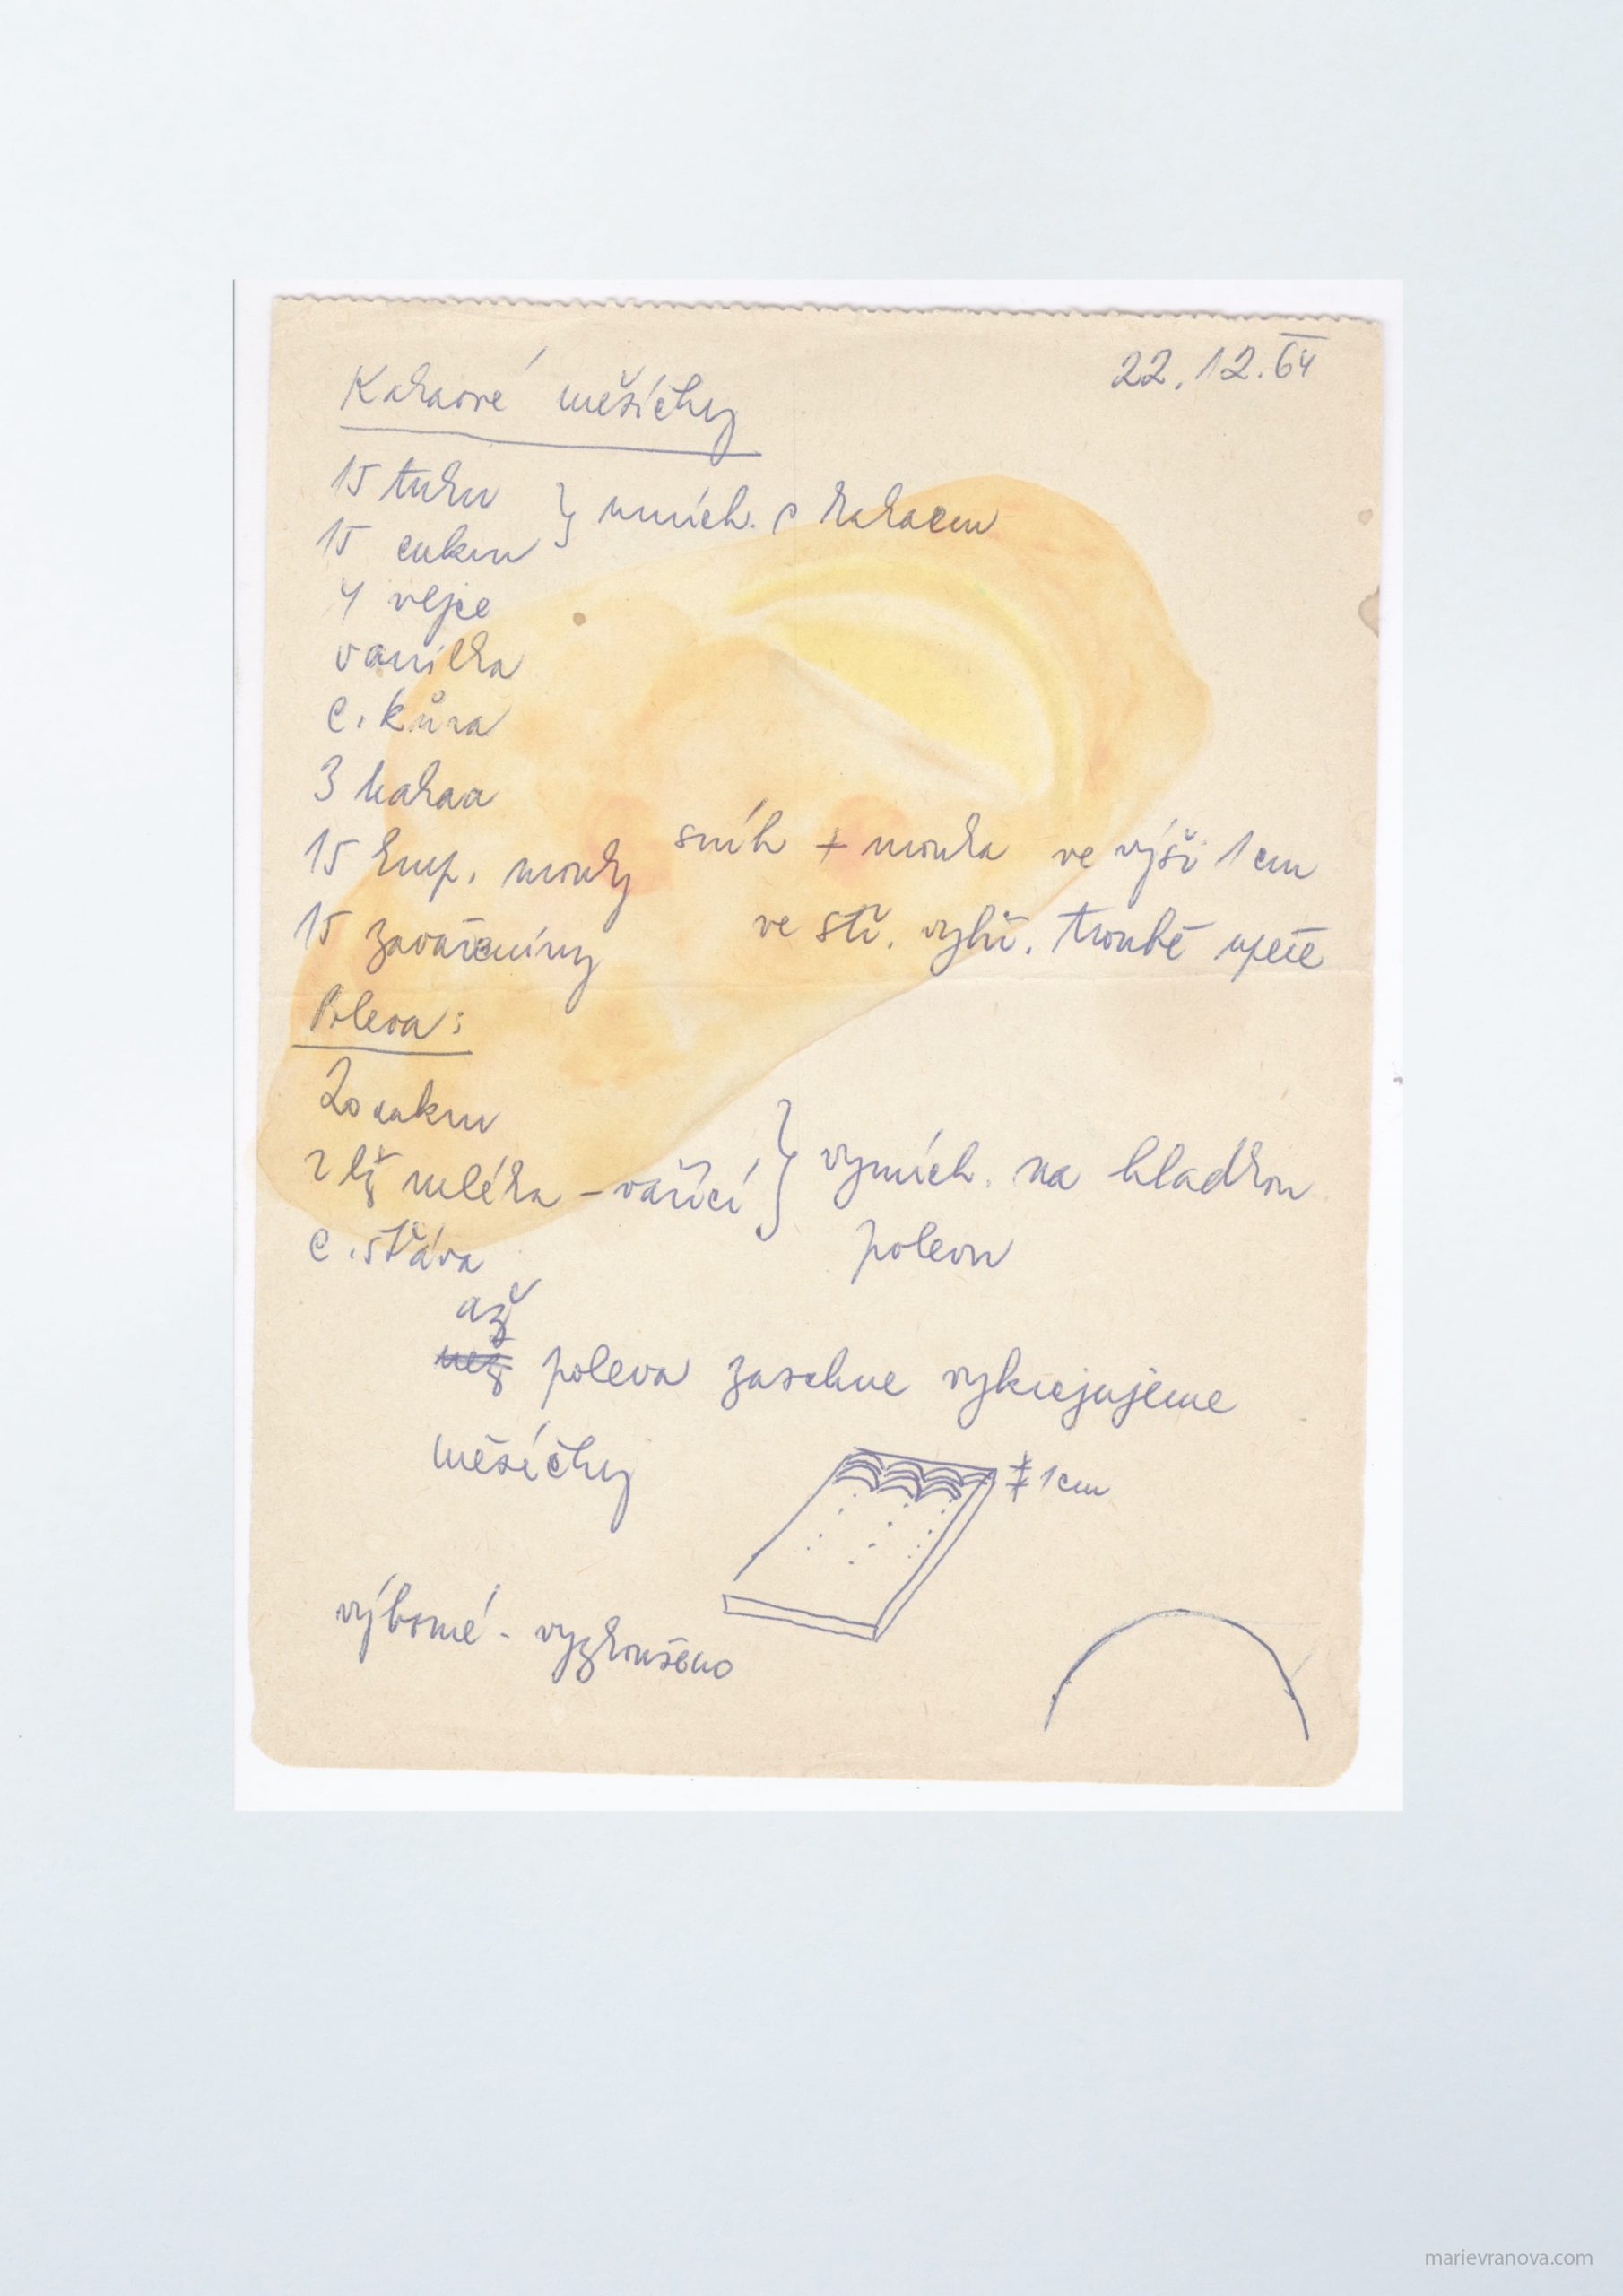 22.12.64
Kakaové měsíčky
15 tuku } umích. s kakaem
15 cukru
4 vejce
vanilka
c. kůra
3 kakaa
15 krup. mouky sníh + mouka ve výši 1 cm
15 zavařeniny ve stř. vyhř. troubě upéct
Poleva:
20 cukru
2 lž mléka - vařící } vymích. na hladkou
c. šťáva polevu
až
než poleva zaschne vykrejujeme
měsíčky
1 cm
výborné - vyzkoušeno
marievranova.com